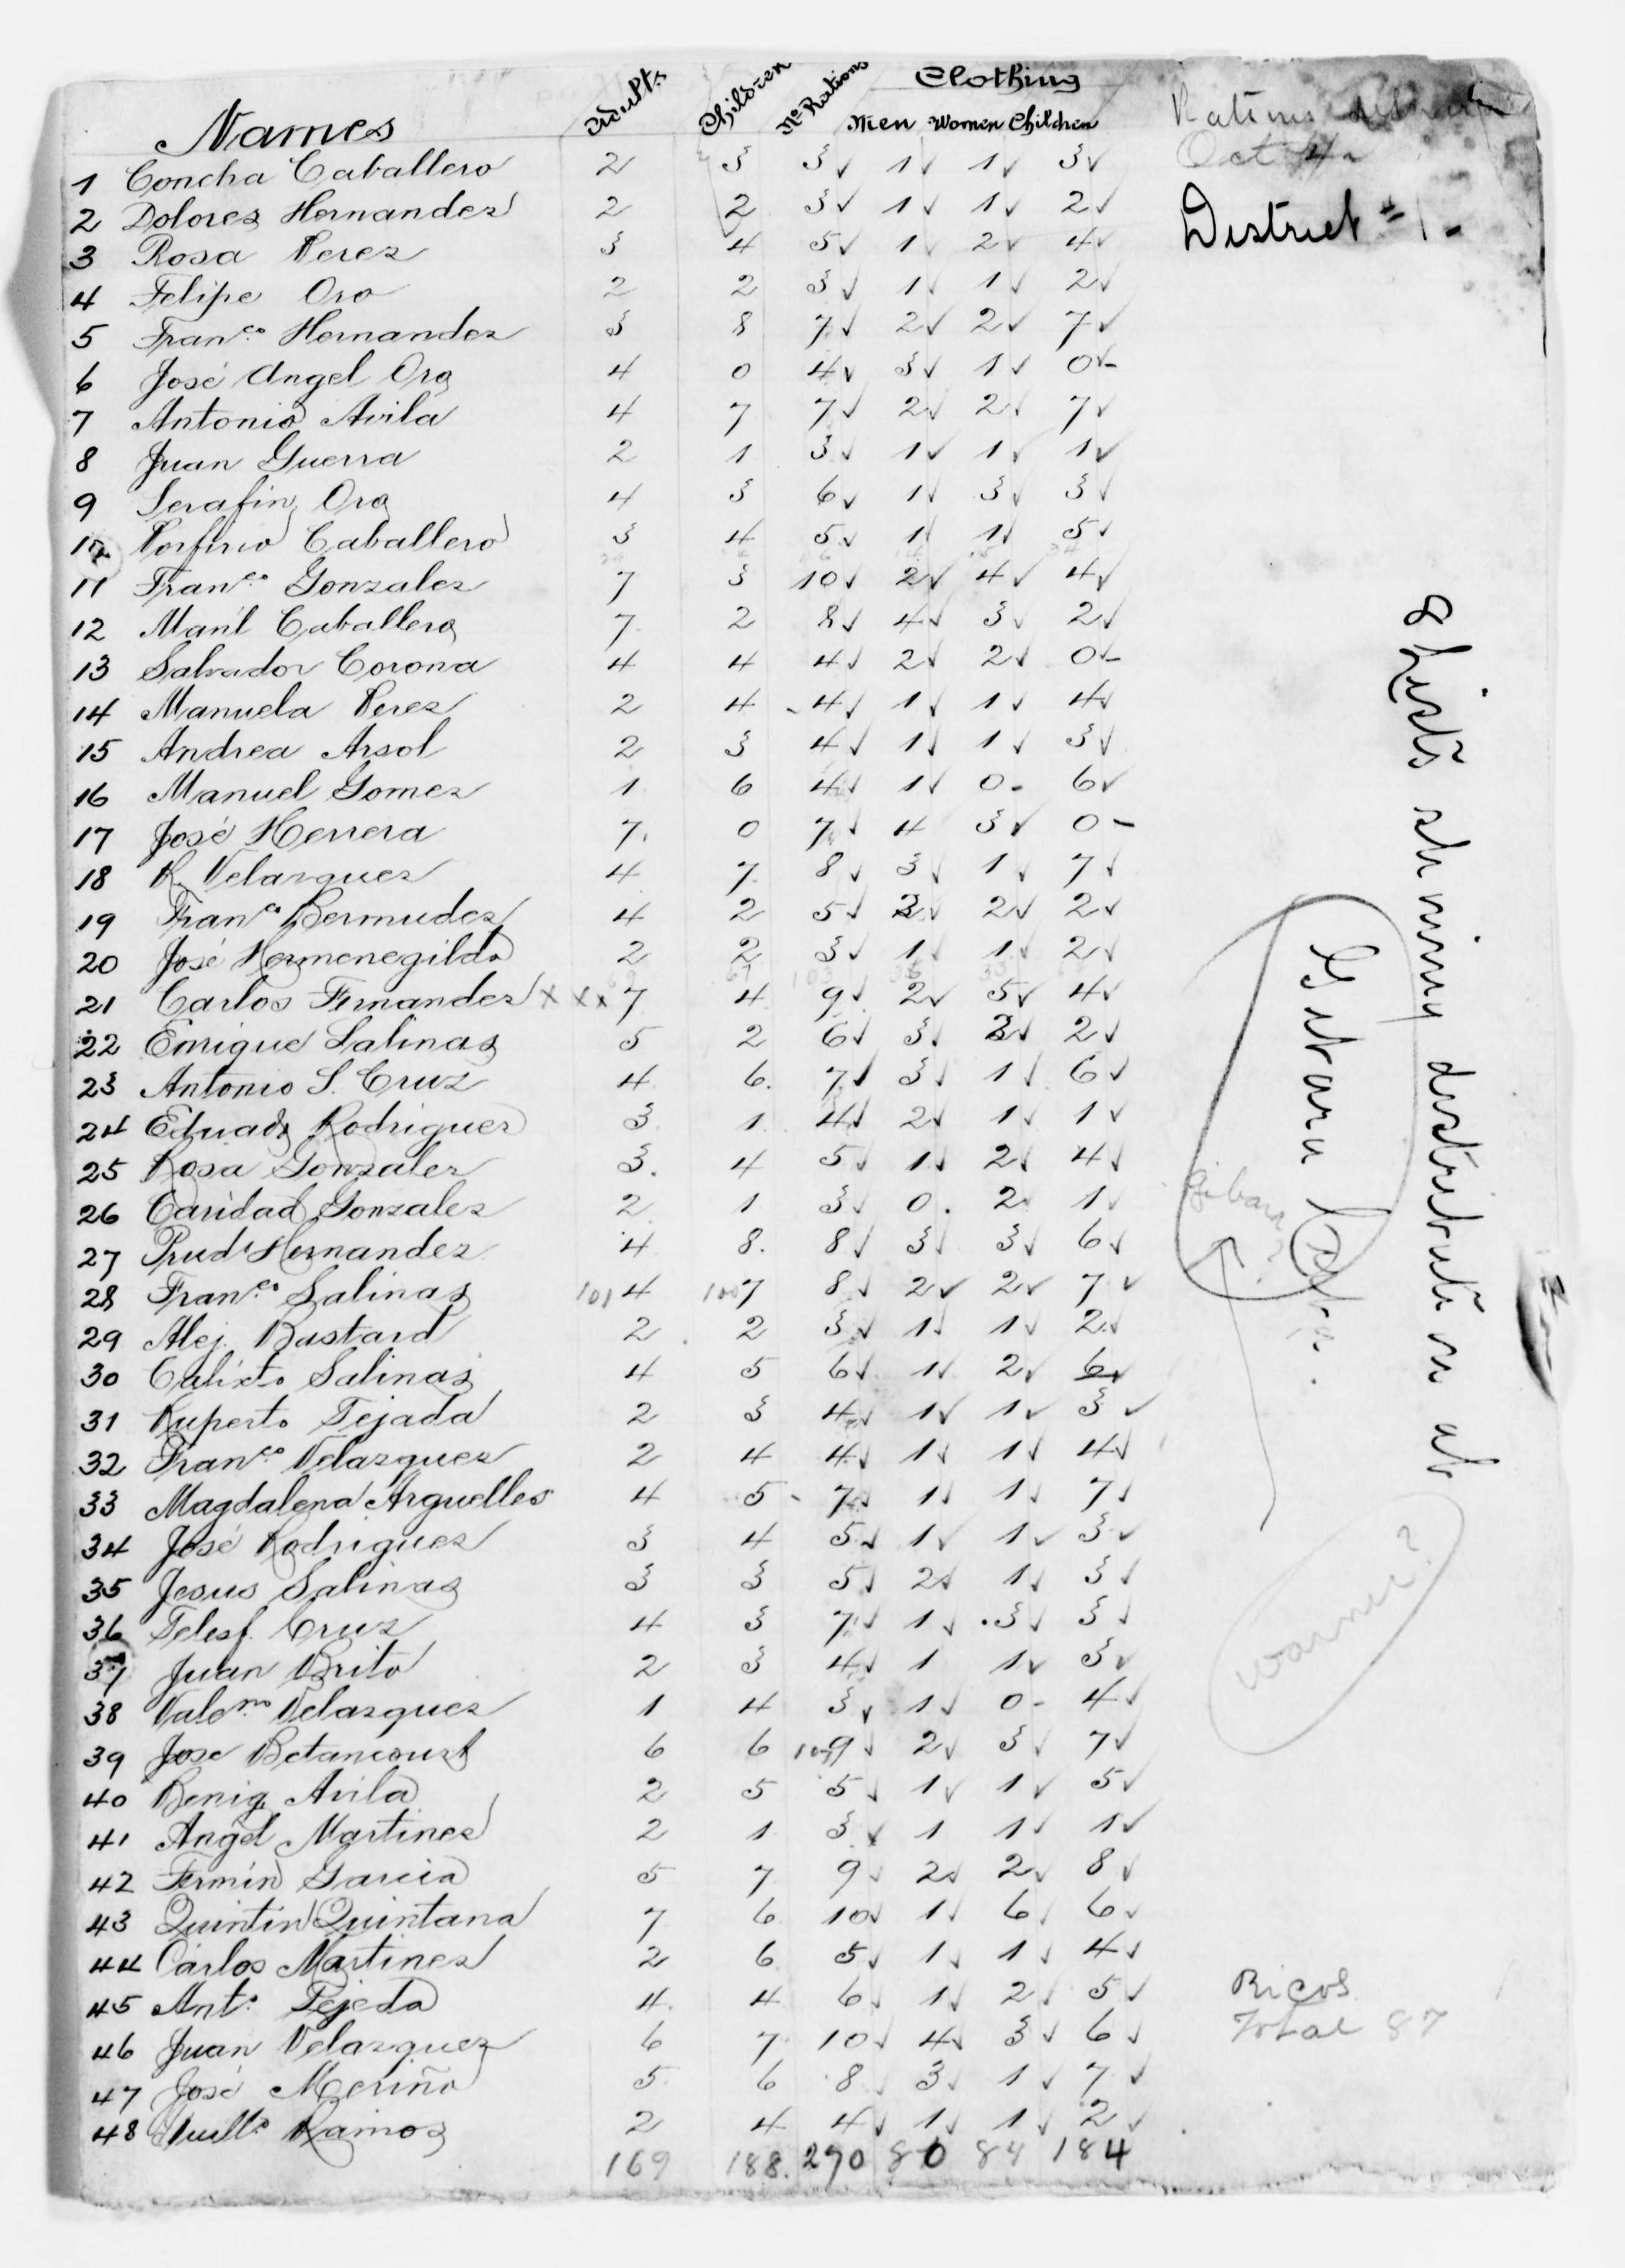 Names Adults Children No Rations Clothing
Men Women Children
1 Concha Caballero 2 3 3✓ 1✓ 1✓ 3✓
2 Dolores Hernandez 2 2 3✓ 1✓ 1✓ 2✓
3 Rosa Perez 3 4 5✓ 1✓ 2✓ 4✓
4 Felipe Oro 2 2 3✓ 1✓ 1✓ 2✓
5 Franco. Hernandez 3 8 7✓ 2✓ 2✓ 7✓
6 José Angel Oro 4 0 4✓ 3✓ 1✓ 0✓-
7 Antonio Avila 4 7 7✓ 2✓ 2✓ 7✓
8 Juan Guerra 2 1 3✓ 1✓ 1✓ 1✓
9 Serafin Oro 4 3 6✓ 1✓ 3✓ 3✓
10 Porfirio Caballero 3 4 5✓ 1✓ 1✓ 5✓
11 Franco. Gonzalez 7 3 10✓ 2✓ 4✓ 4✓
12 Manl Caballero 7 2 8✓ 4✓ 3✓ 2✓
13 Salvador Corona 4 4 4✓ 2✓ 2✓ 0✓-
14 Manuela Perez 2 4 4✓ 1✓ 1✓ 4✓
15 Andrea Arsol 2 3 4✓ 1✓ 1✓ 3✓
16 Manuel Gomez 1 6 4✓ 1✓ 0- 6✓
17 José Herrera 7 0 7✓ 4 3✓ 0-
18 R. Velazquez 4 7 8✓ 3✓ 1✓ 7✓
19 Franco Bermudez 4 2 5✓ 2✓ 2✓ 2✓
20 José Hermenegildo 2 2 3✓ 1✓ 1✓ 2✓
21 Carlos Fernandez x x x 7 4 9✓ 2✓ 5✓ 4✓
22 Enrique Salinas 5 2 6✓ 3✓ 2✓ 2✓
23 Antonio S. Cruz 4 6 7✓ 3✓ 1✓ 6✓
24 Eduado Rodriguez 3 1 4✓ 2✓ 1✓ 1✓
25 Rosa Gonzalez 3 4 5✓ 1✓ 2✓ 4✓
26 Caridad Gonzalez 2 1 3✓ 0. 2✓ 1✓
27 Prudo Hernandez 4 8 8✓ 3✓ 3✓ 6✓
28 Franco. Salinas 101 4 100 7 8✓ 2✓ 2✓ 7✓
29 Alej. Bastard 2 2 3✓ 1✓ 1✓ 2✓
30 Calixto Salinas 4 5 6✓ 1✓ 2✓ 6✓
31 Ruperto Tejada 2 3 4✓ 1✓ 1✓ 3✓
32 Franco. Velazquez 2 4 4✓ 1✓ 1✓ 4✓
33 Magdalena Arguelles 4 5 7✓ 1✓ 1✓ 7✓
34 José Rodriguez 3 4 5✓ 1✓ 1✓ 3✓
35 Jesus Salinas 3 3 5✓ 2✓ 1✓ 3✓
36 Telesf. Cruz 4 3 7✓ 1✓ 3✓ 3✓
37 Juan Brito 2 3 4✓ 1 1✓ 3✓
38 Valeno Velazquez 1 4 3✓ 1✓ 0- 4✓
39 Jose Betancourt 6 6 9✓ 2✓ 3✓ 7✓
40 Benig. Avila 2 5 5✓ 1✓ 1✓ 5✓
41 Angel Martinez 2 1 3✓ 1 1✓ 1✓
42 Fermin Garcia 5 7 9✓ 2✓ 2✓ 8✓
43 Quintin Quintana 7 6 10✓ 1✓ 6✓ 6✓
44 Carlos Martinez 2 6 5✓ 1✓ 1✓ 4✓
45 Anto. Tejeda 4 4 6✓ 1✓ 2✓ 5✓
46 Juan Velazquez 6 7 10✓ 4✓ 3✓ 6✓
47 José Meriño 5 6 8✓ 3✓ 1✓ 7✓
48 Guillo. Ramos 2 4 4✓ 1✓ 1✓ 2✓
169 188. 290 80 84 184
Rations
Oct 4
District #1-
8 Lists showing distributions at
Gibara
Gibara?
Warner?
Ricos
Total 87